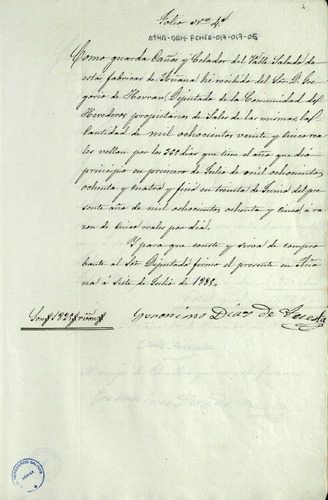 Folio nro 4º
ATHA-DAH-FCHEA-017-017-05
Como guarda Caños y Celador del Valle Salado de
estas fabricas de Añana hé recibido del Sór. D. Gre
gorio de Herran, Diputado de la Comunidad de
Herederos propietarios de Sales de las mismas la
Cantidad de mil ochocientos veinte y cinco rea
les vellon por los 365 dias que tiene el año que dió
principio en primero de Julio de mil ochocientos
ochenta y cuatro y finó en treinta de Junio del pre
sente año de mil ochocientos ochenta y cinco á ra
zon de cinco reales por dia.
Y para que conste y sirva de compro
bante al Sór Diputado firmo el presente en Aña
na á siete de Julio de 1885.
Son 1825 rvon
Geronimo Diaz de Tuesta